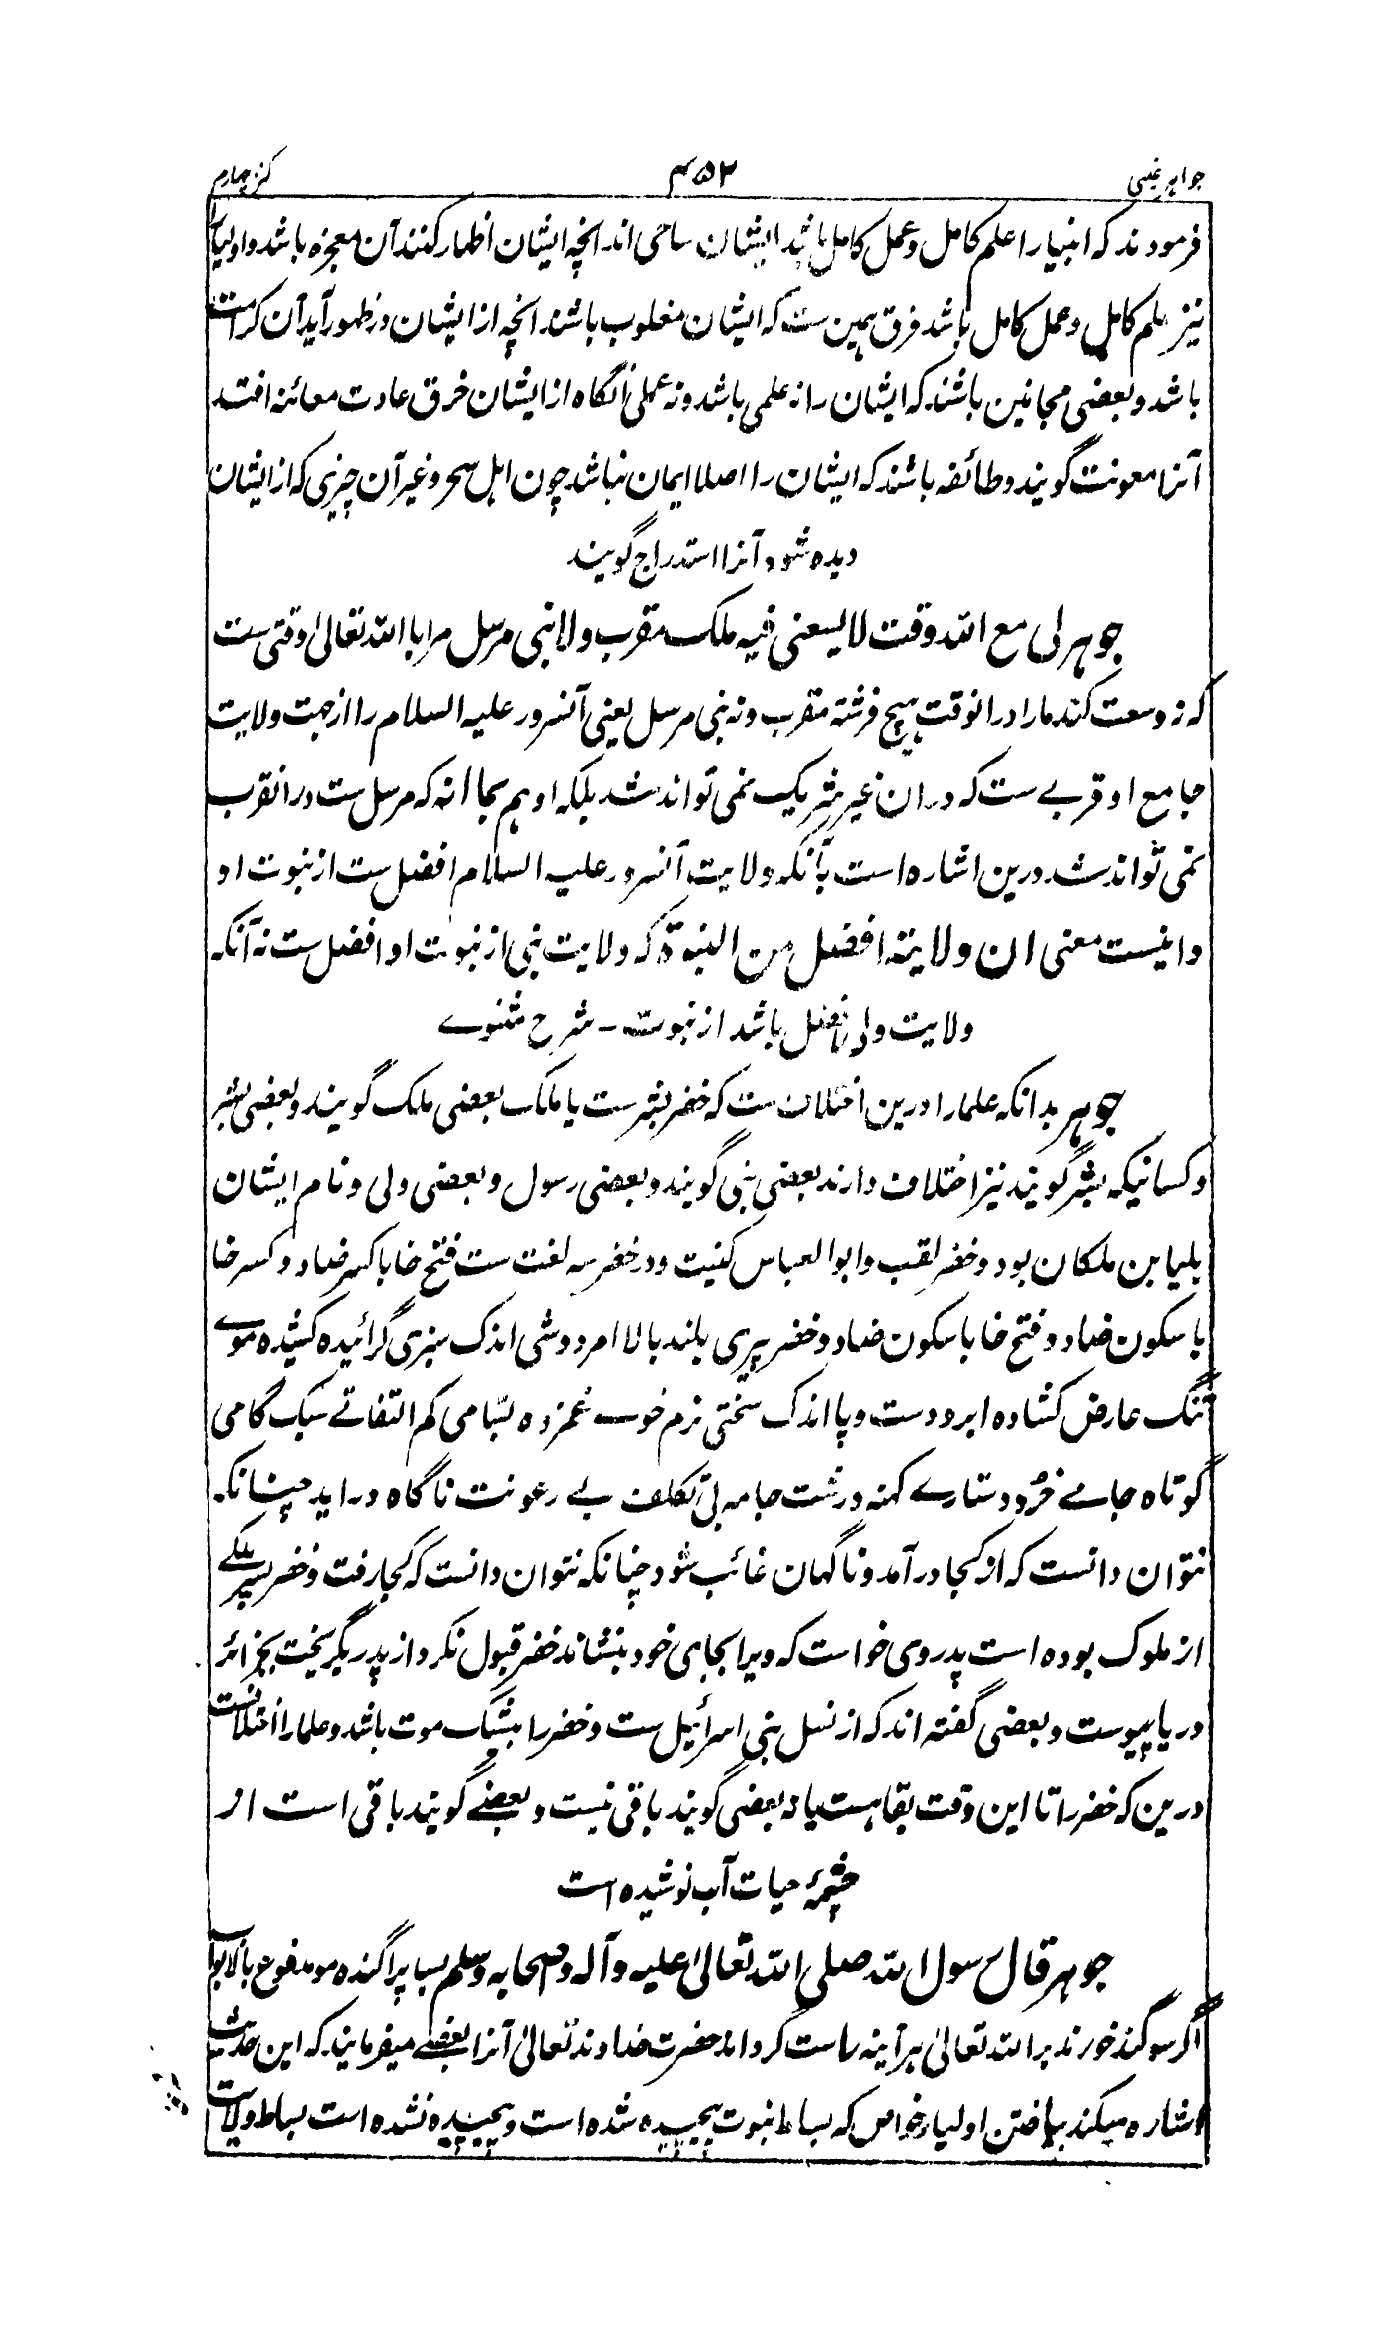 جواهر غیبی ۴۵۲ کنز چهارم
فرمودند که انبیا را علم کامل و عمل کامل باشد ایشان صاحی اند انچه ایشان اظهار کنند آن معجزه باشد و اولیا را
نیز علم کامل و عمل کامل باشد فرق همین ست که ایشان مغلوب باشند انچه از ایشان در ظهور آید آن کرامت
باشد و بعضی مجانین باشند که ایشان را نه علمی باشد و نه عملی آنگاه از ایشان خرق عادت معائنه افتد
آنرا معونت گویند و طائفه باشند که ایشان را اصلا ایمان نباشد چون اهل سحر و غیر آن چیزی که از ایشان
دیده شود آنرا استدراج گویند
جوهر لی مع الله وقت لا یسعنی فیه ملک مقرب و لا نبی مرسل مرا با الله تعالیٰ وقتی ست
که نه وسعت کند مارا در انوقت هیچ فرشته مقرب و نه نبی مرسل یعنی آنسرور علیه السلام را از جهت ولایت
جامع او قربے ست که دران غیر شریک نمی تواند شد بلکه او هم بجا انه که مرسل ست در انقرب
نمی تواند شد درین اشاره است بآنکه ولایت آنسرور علیه السلام افضل ست از نبوت او
و اینست معنی ان ولایته افضل من النبوة که ولایت نبی از نبوت او افضل ست نه آنکه
ولایت ولی افضل باشد از نبوت - شرح مثنوے
جوهر بدانکه علما را درین اختلاف ست که خضر بشر ست یا ملک بعضی ملک گویند و بعضی بشر
و کسانیکه بشر گویند نیز اختلاف دارند بعضی نبی گویند و بعضی رسول و بعضی ولی و نام ایشان
بلیا بن ملکان بود و خضر لقب و ابو العباس کنیت و در خضر سه لغت ست فتح خا با کسر ضاد و کسر خا
با سکون ضاد و فتح خا با سکون ضاد و خضر پیری بلند بالا امرد وشی اندک سبزی گرائیده کشیده موے
تنگ عارض کشاده ابرو دست و پا اندک سختی نرم خوے غمزده بسّامی کم التفاتے سبک گامی
کوتاه جامے خرد دستارے کهنه درشت جامه بی تکلف بے رعونت ناگاه در اید چنانکه
نتوان دانست که از کجا در آمد و ناگهان غائب شود چنانکه نتوان دانست که کجا رفت و خضر پسر ملکے
از ملوک بوده است پدر وی خواست که ویرا بجای خود بنشاند خضر قبول نکرد از پدر بگریخت بجزائر
دریا پیوست و بعضی گفته اند که از نسل بنی اسرائیل ست و خضر را بیشک موت باشد و علما را اختلافست
درین که خضر را تا این وقت بقا هست یا نه بعضی گویند باقی نیست و بعضے گویند باقی است از
چشمهٔ حیات آب نوشیده است
جوهر قال رسول الله صلی الله تعالیٰ علیه و آله و صحابه وسلم بسا پراگنده مو مدفوع بالابواب
اگر سوگند خورند بر الله تعالیٰ هر آینه راست گرداند حضرت خداوند تعالیٰ آنرا بعضے میفرمایند که این حدیث
اشاره میکند بیافتن اولیاء خواص که بساط نبوت پیچیده شده است و پیچیده نشده است بساط ولایت